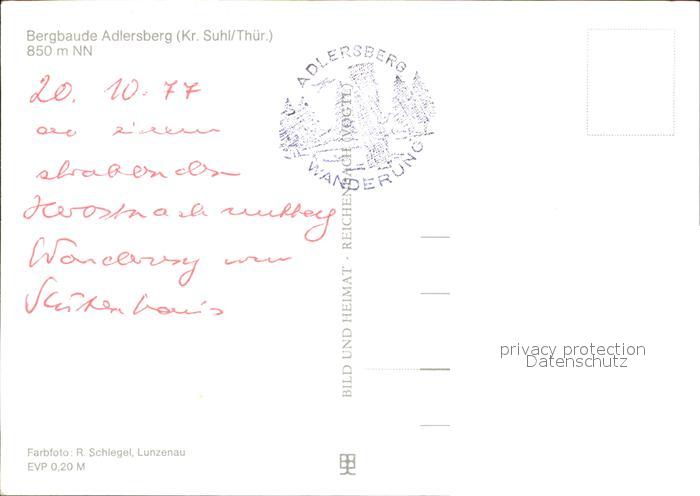 Bergbaude Adlersberg (Kr. Suhl/Thür.)
850 m NN
20. 10. 77
an einem
strahlenden
Herbstnachmittag
Wanderung vom
Stutenhaus
ADLERSBERG
WANDERUNG
BILD UND HEIMAT · REICHENBACH (VOGTL)
privacy protection
Datenschutz
Farbfoto: R. Schlegel, Lunzenau
EVP 0,20 M